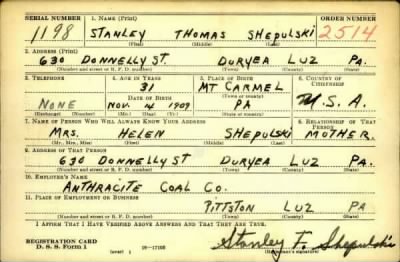 SERIAL NUMBER 1. NAME (Print) ORDER NUMBER
1198 STANLEY THOMAS SHEPULSKI 2514
(First) (Middle) (Last)
2. ADDRESS (Print)
630 DONNELLY ST. DURYEA LUZ PA.
(Number and street or R. F. D. number) (Town) (County) (State)
3. TELEPHONE 4. AGE IN YEARS 5. PLACE OF BIRTH 6. COUNTRY OF CITIZENSHIP
31 MT CARMEL
DATE OF BIRTH (Town or county)
NONE NOV. 4 1909 PA U.S.A.
(Exchange) (Number) (Mo.) (Day) (Yr.) (State or country)
7. NAME OF PERSON WHO WILL ALWAYS KNOW YOUR ADDRESS 8. RELATIONSHIP OF THAT PERSON
MRS. HELEN SHEPULSKI MOTHER.
(Mr., Mrs., Miss) (First) (Middle) (Last)
9. ADDRESS OF THAT PERSON
630 DONNELLY ST DURYEA LUZ PA.
(Number and street or R. F. D. number) (Town) (County) (State)
10. EMPLOYER'S NAME
ANTHRACITE COAL CO.
11. PLACE OF EMPLOYMENT OR BUSINESS
PITTSTON LUZ PA
(Number and street or R. F. D. number) (Town) (County) (State)
I AFFIRM THAT I HAVE VERIFIED ABOVE ANSWERS AND THAT THEY ARE TRUE.
REGISTRATION CARD
D. S. S. Form 1 (over) 16—17105 Stanley T. Shepulski
(Registrant's signature)